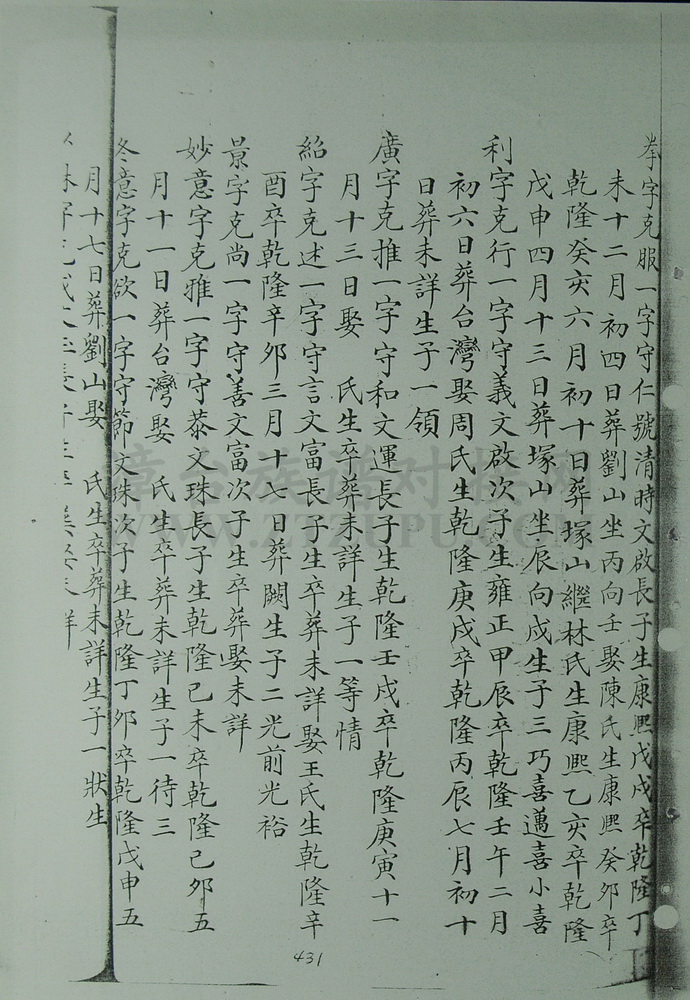 拳字克服一字守仁號清時文啟長子生康熙戊戌卒乾隆丁
未十二月初四日葬劉山坐丙向壬娶陳氏生康熙癸卯卒
乾隆癸亥六月初十日葬塚山繼林氏生康熙乙亥卒乾隆
戊申四月十三日葬塚山坐辰向戌生子三巧喜邁喜小喜
利字克行一字守義文啟次子生雍正甲辰卒乾隆壬午二月
初六日葬台灣娶周氏生乾隆庚戌卒乾隆丙辰七月初十
日葬未詳生子一領
廣字克推一字守和文運長子生乾隆壬戌卒乾隆庚寅十一
月十三日娶 氏生卒葬未詳生子一等情
紹字克述一字守言文富長子生卒葬未詳娶王氏生乾隆辛
酉卒乾隆辛卯三月十七日葬闕生子二光前光裕
景字克尚一字守善文富次子生卒葬娶未詳
妙意字克雅一字守恭文珠長子生乾隆己未卒乾隆己卯五
月十一日葬台灣娶 氏生卒葬未詳生子一待三
冬意字克欲一字守節文珠次子生乾隆丁卯卒乾隆戊申五
月十七日葬劉山娶 氏生卒葬未詳生子一狀生
431
章台族谱对接网
WWW.ZTZUPU.COM